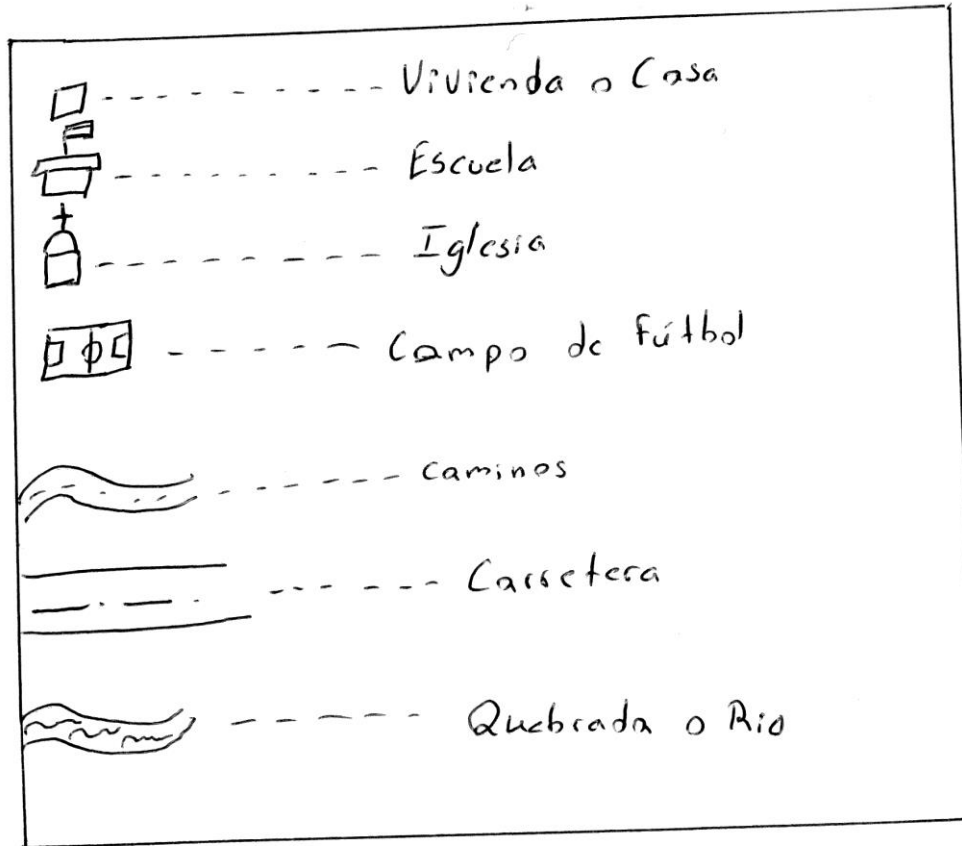 Vivienda o Casa
Escuela
Iglesia
Campo de Fútbol
caminos
Carretera
Quebrada o Rio